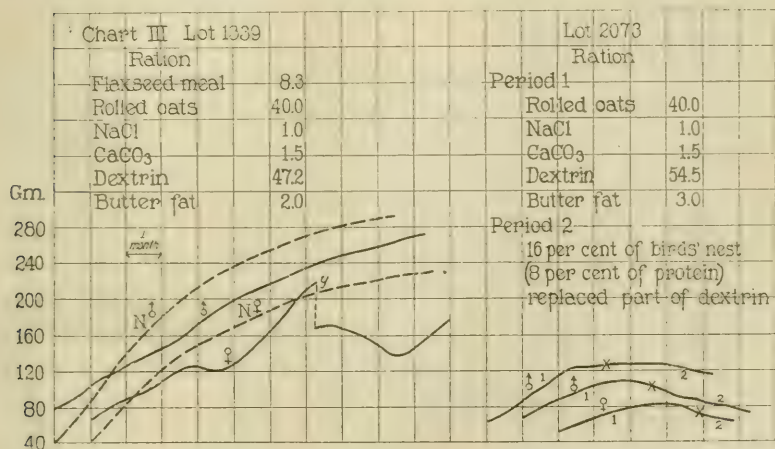 Chart III Lot 1339
Ration
Flaxseed meal 8.3
Rolled oats 40.0
NaCl 1.0
CaCO3 1.5
Dextrin 47.2
Butter fat 2.0
Lot 2073
Ration
Period 1
Rolled oats 40.0
NaCl 1.0
CaCO3 1.5
Dextrin 54.5
Butter fat 3.0
Period 2
16 per cent of birds' nest
(8 per cent of protein)
replaced part of dextrin
Gm.
280
240
200
160
120
80
40
1 month
N♂
♂
N♀
♀
y
♂ 1 X 2
♂ 1 X 2
♀ 1 X 2